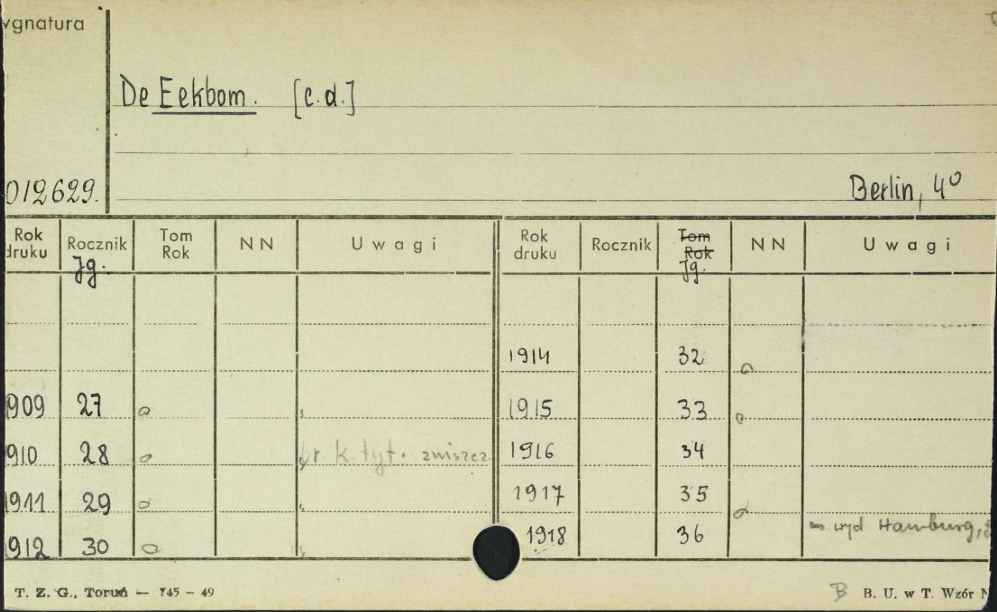 ygnatura
De Eekbom. [c.d.]
012629. Berlin, 4°
Rok druku Rocznik Jg. Tom Rok NN Uwagi Rok druku Rocznik Tom Rok Jg. NN Uwagi
1914 32
909 27 1915 33
910 28 br. k. tyt. zniszcz 1916 34
1911 29 1917 35
912 30 1918 36 wyd Hamburg,
T. Z. G., Toruń — 745 – 49 B B. U. w T. Wzór N